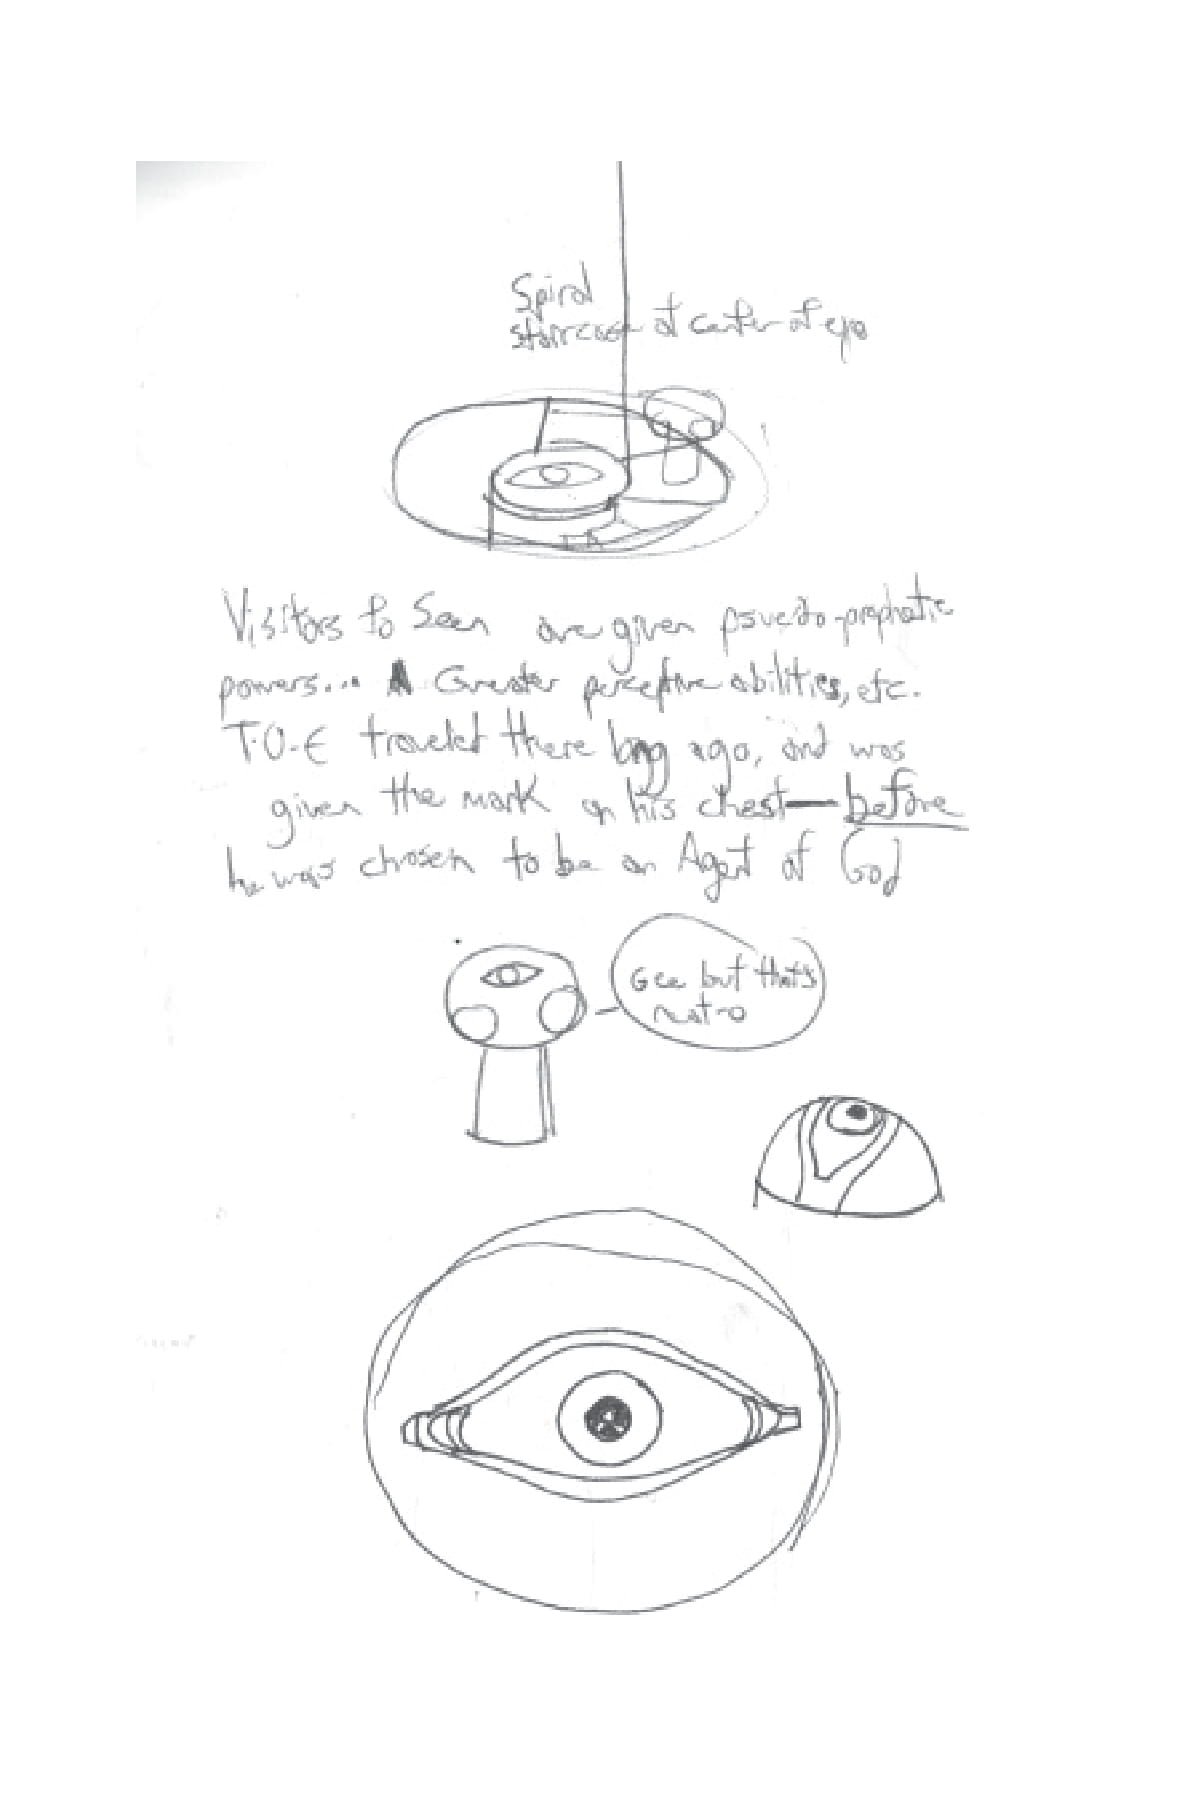 Spiral
staircase at center of eye
Visitors to Seen are given psuedo-prophetic
powers... A Greater perceptive abilities, etc.
T-O-E traveled there long ago, and was
given the mark on his chest—before
he was chosen to be an Agent of God
Gee but that's
neat-o